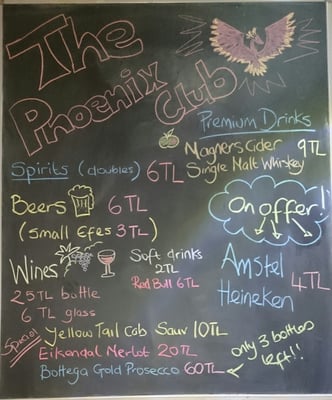 The
Phoenix
Club
Premium Drinks
Magners Cider 9TL
Single Malt Whiskey
Spirits (doubles) 6TL
Beers 6TL
(Small Efes 3TL)
On offer!
Amstel
Heineken
4TL
Wines
25TL bottle
6TL glass
Soft drinks
2TL
Red Bull 6TL
Special
Yellow Tail Cab Sauv 10TL
Eikendal Merlot 20TL
Bottega Gold Prosecco 60TL
only 3 bottles
left!!